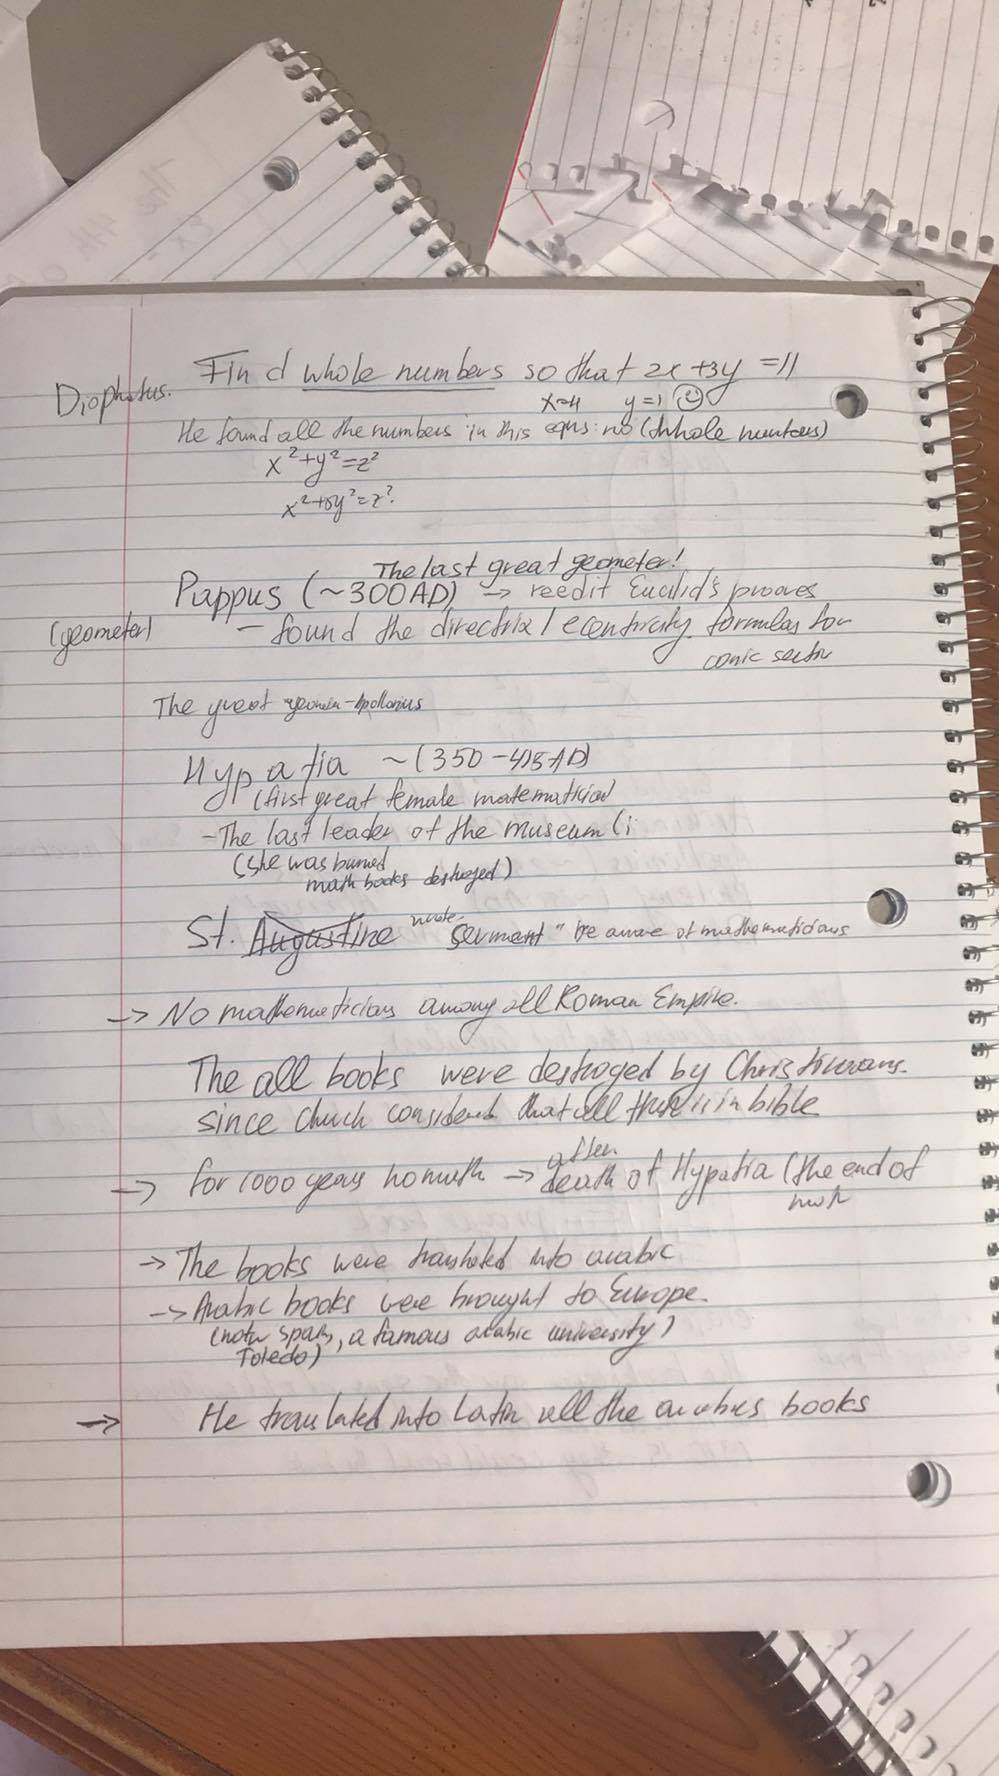 Find whole numbers so that 2x+3y=11
Diophatus.
x=4 y=1
He found all the numbers in this eqns: no (whole numbers)
x²+y²=z²
x²+5y²=z²
The last great geometer!
Pappus (~300AD) → reedit Euclid's prooves
(geometer) – found the directrix / ecentricity formulas for
conic sectin
The great Apollonius
Hypatia ~(350-415AD)
(first great female matematician
-The last leader of the museum (i
(she was burned
math books destroyed)
St. Augustine wrote "serment" be aware of mathematicians
-> No mathematicians among all Roman Empire.
The all books were destroyed by Christians.
since church considered that all there is in bible
after
-> for 1000 years no math -> death of Hypatia (the end of
math
-> The books were translated into arabic
-> Arabic books were brought to Europe.
(now Spain, a famous arabic university)
Toledo)
-> He translated into Latin all the books